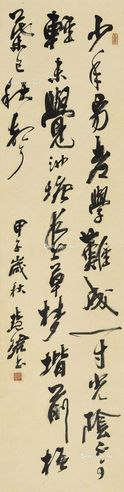 少年易老學難成一寸光陰不可
輕未覺池塘春草夢堦前梧
葉已秋聲
甲子歲秋